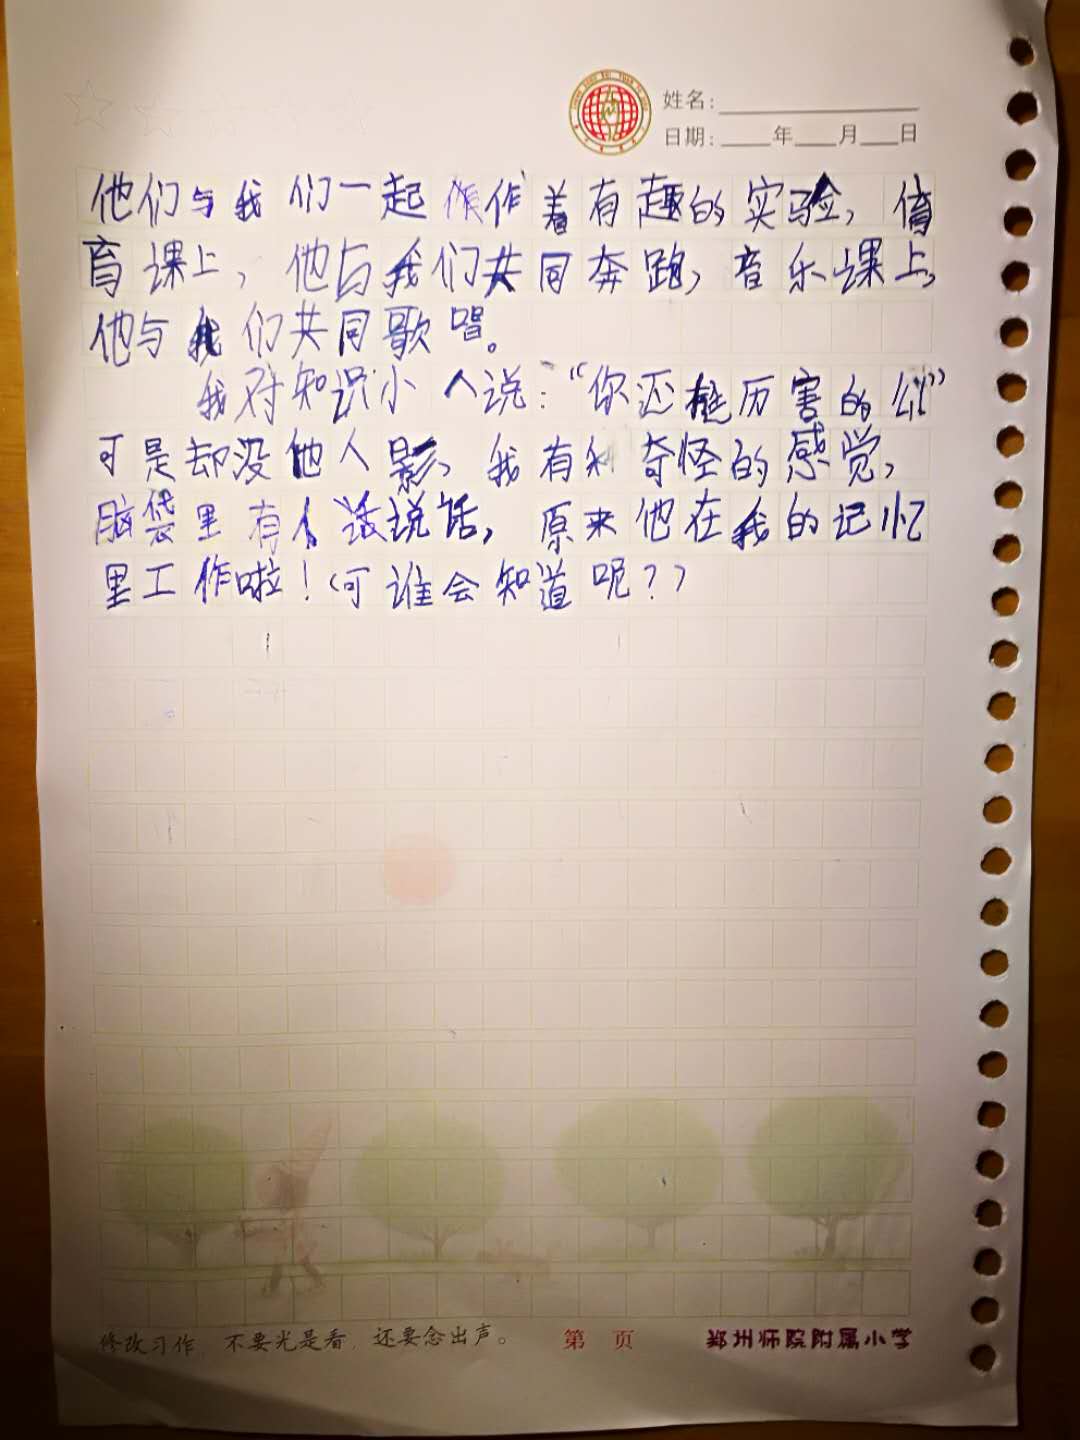 姓名：
日期：年月日
他们与我们一起操作着有趣的实验，体
育课上，他与我们共同奔跑，音乐课上，
他与我们共同歌唱。
我对知识小人说：“你还挺厉害的
可是却没他人影，我有种奇怪的感觉，
脑袋里有人说话，原来他在我的记忆
里工作啦！（可谁会知道呢？）
修改习作，不要光是看，还要念出声。 第 页 郑州师院附属小学